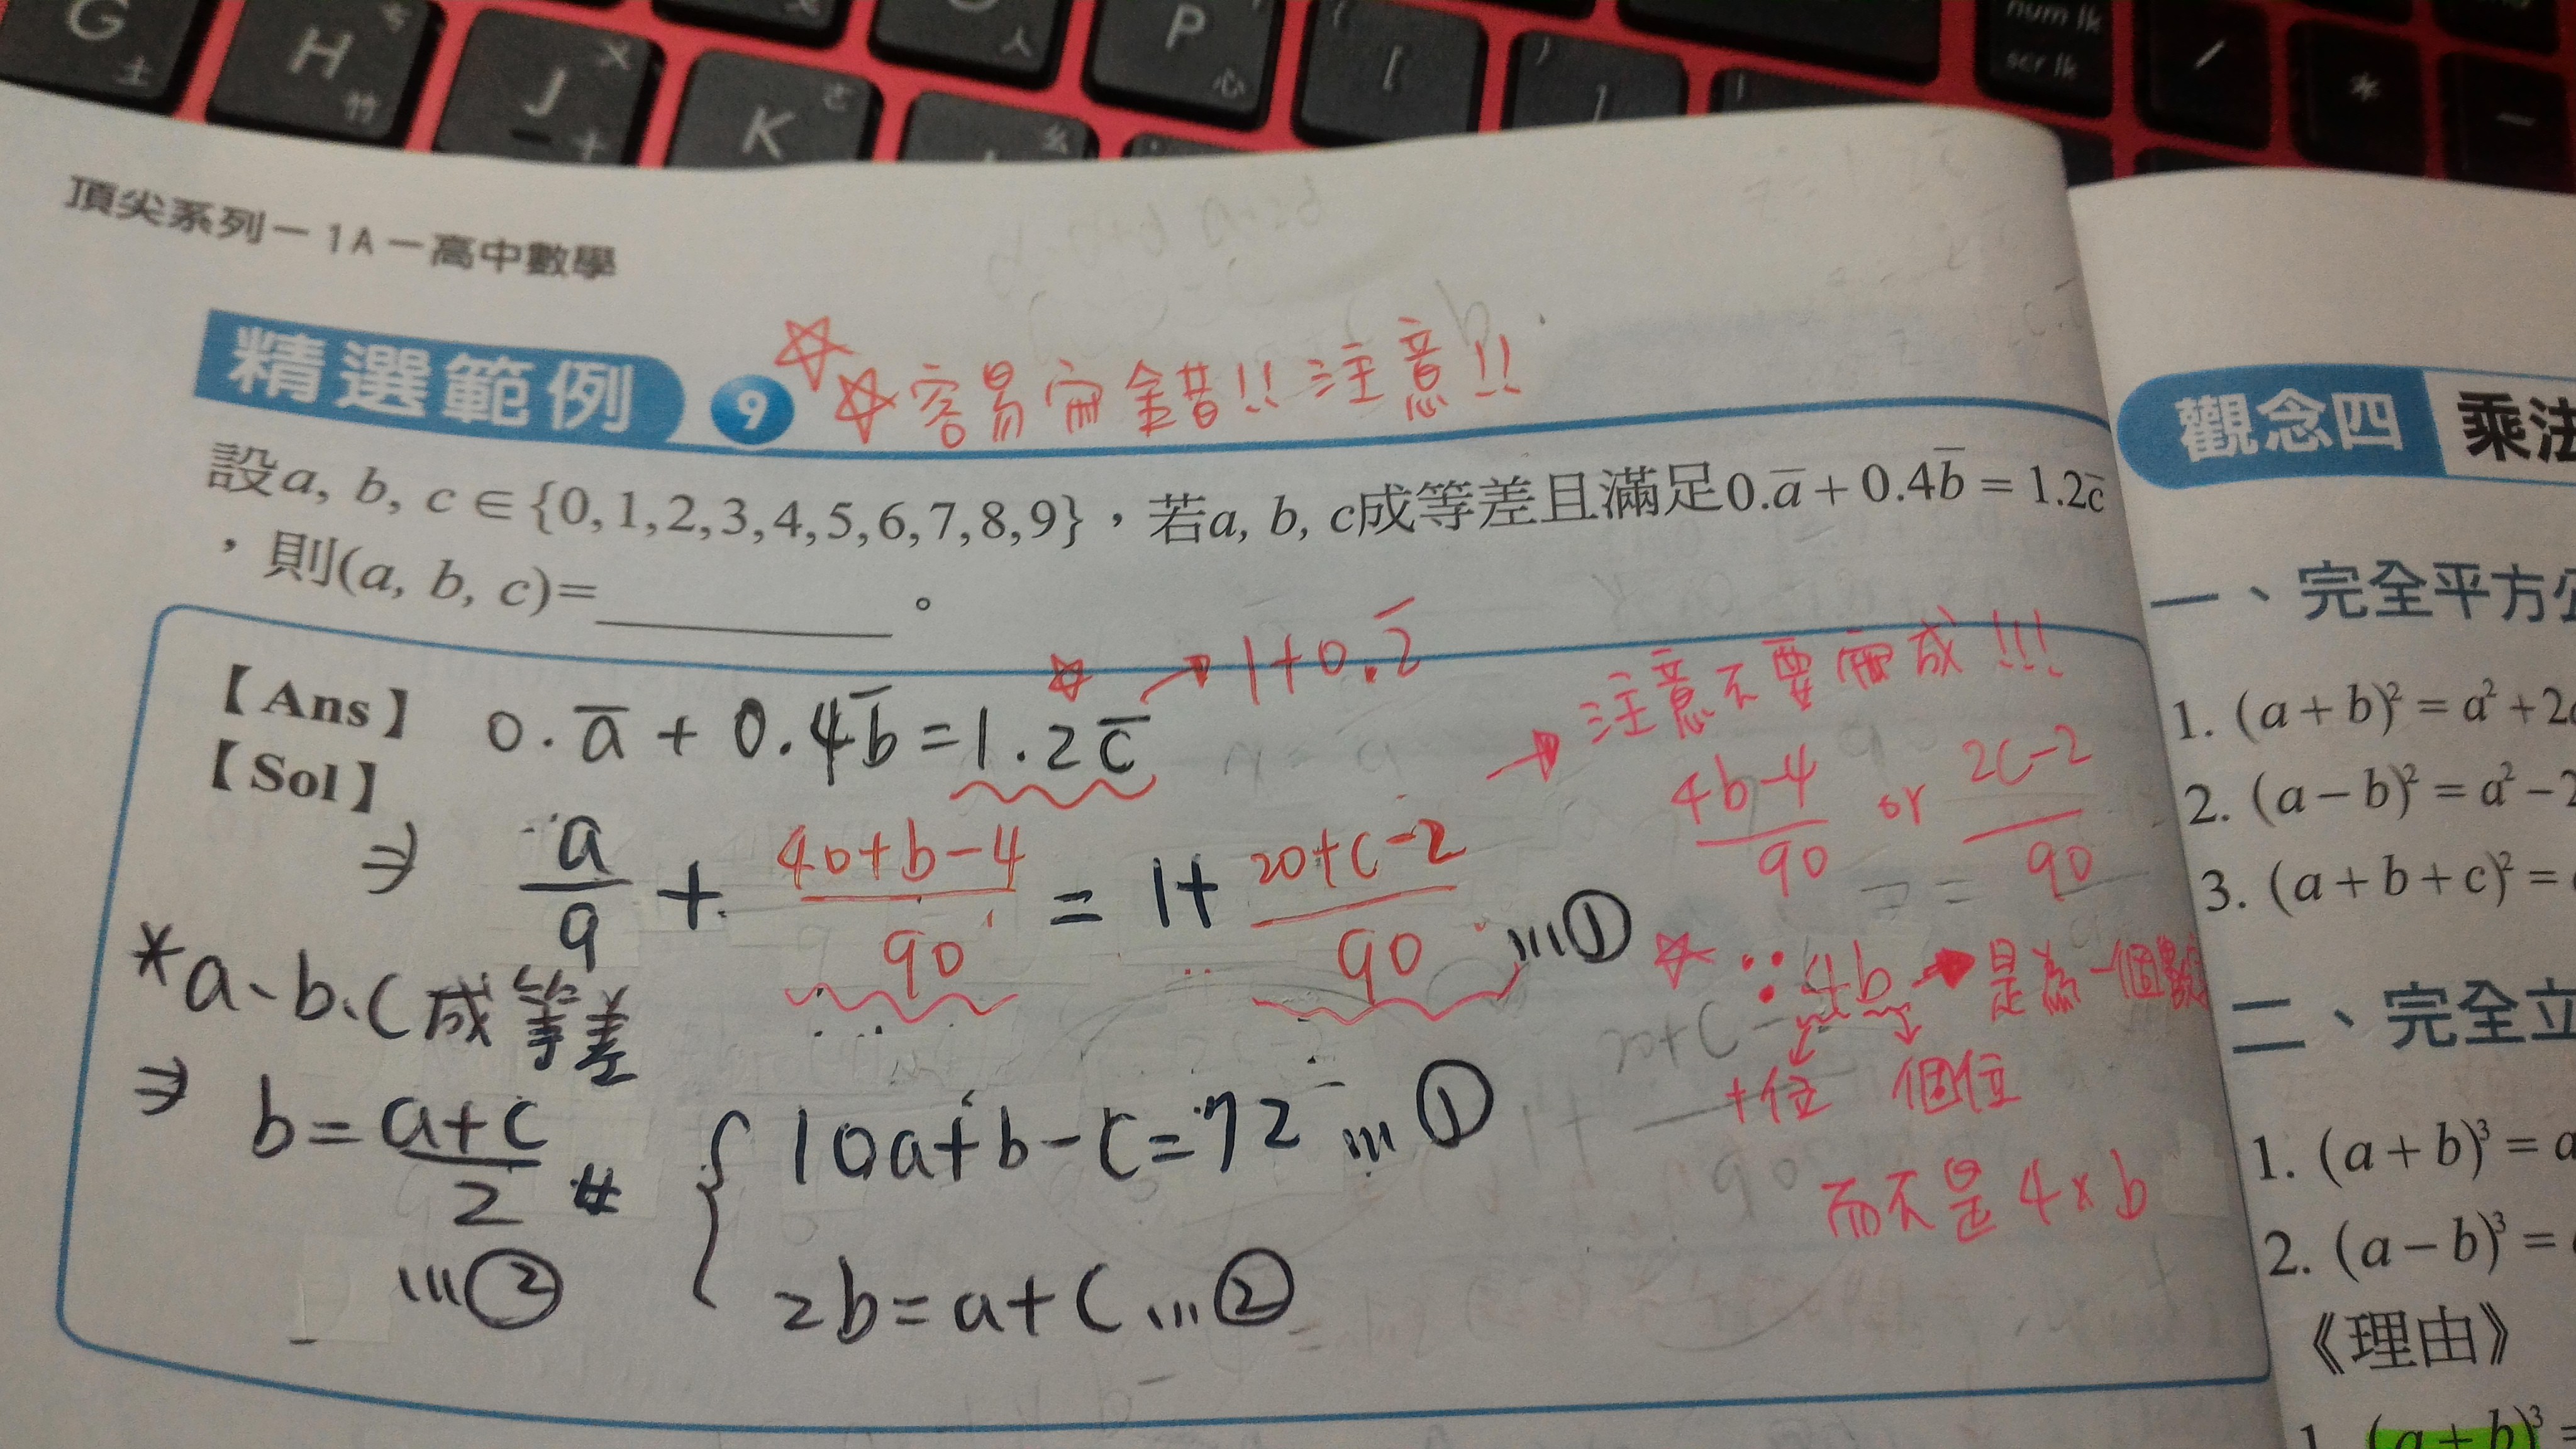 G 土
H 竹
J ㄨ 十
K ㄜ
人
P 心
[
]
num lk
scr lk
/
*
−
頂尖系列－1A－高中數學
精選範例 9 容易寫錯!! 注意!!
設a, b, c ∈ {0,1,2,3,4,5,6,7,8,9}，若a, b, c成等差且滿足0.a̅ + 0.4b̅ = 1.2c̅
，則(a, b, c)=__________。
【Ans】
【Sol】
0.a̅ + 0.4b̅ = 1.2c̅ → 1+0.2̅
⇒ a/9 + (40+b-4)/90 = 1+ (20+c-2)/90 ...①
→ 注意不要寫成!!!
(4b-4)/90 or (2c-2)/90
☆ ∵ 4b → 是為一個數
十位 個位
而不是 4×b
*a、b、c成等差
⇒ b = (a+c)/2 # ...②
{ 10a+b-c=72 ...①
2b=a+c ...②
觀念四 乘法
一、完全平方公
1. (a + b)² = a² + 2
2. (a − b)² = a² − 2
3. (a + b + c)² =
二、完全立
1. (a + b)³ = a
2. (a − b)³ =
《理由》
1. (a + b)³